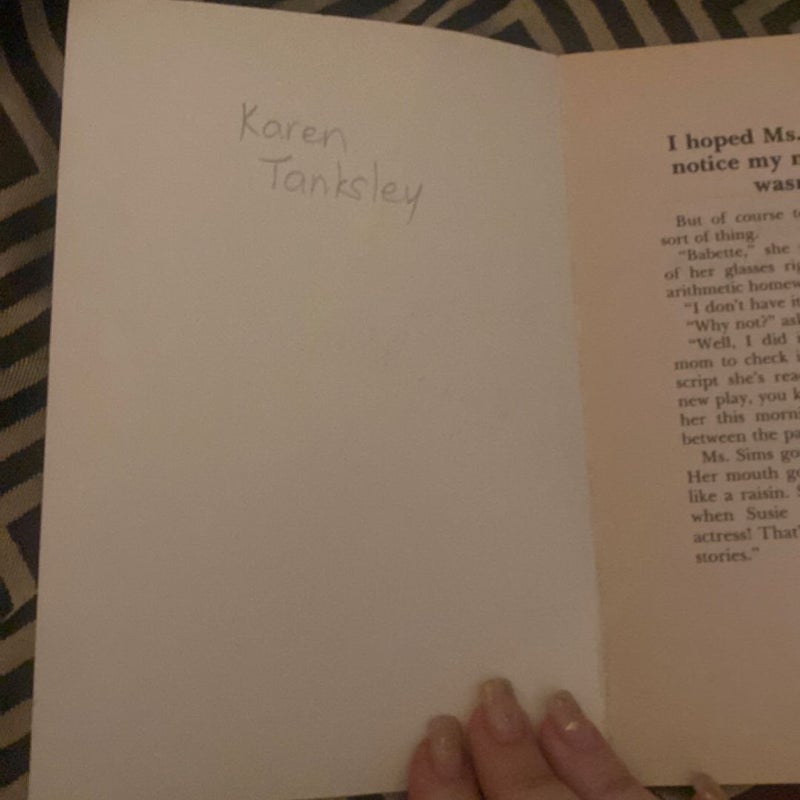 Karen
Tanksley
I hoped Ms.
notice my
But of course
sort of thing.
"Babette," she
of her glasses
arithmetic
"I don't have
"Why not?"
"Well, I did
mom to check
script she's
new play, you
her this
between the
Ms. Sims
Her mouth
like a raisin.
when Susie
actress! That'
stories."